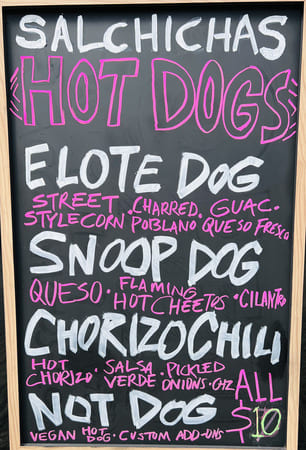 SALCHICHAS
HOT DOGS
ELOTE DOG
STREET · CHARRED · GUAC ·
STYLE CORN POBLANO QUESO FRESCO
SNOOP DOG
QUESO · FLAMING HOT CHEETOS · CILANTRO
CHORIZO CHILI
HOT CHORIZO · SALSA VERDE · PICKLED ONIONS · CHZ
ALL $10
NOT DOG
VEGAN HOT DOG · CUSTOM ADD-ONS